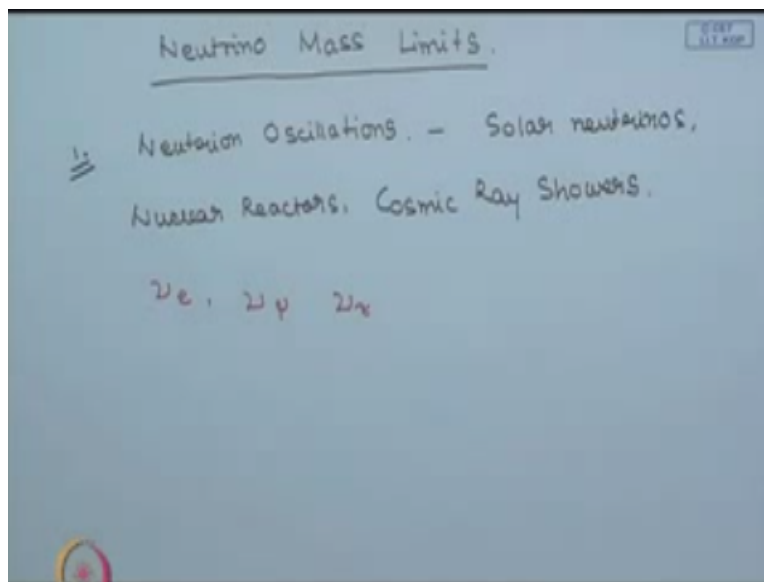 Neutrino Mass Limits.
1. Neutrion Oscillations. - Solar neutrinos,
Nuclear Reactors, Cosmic Ray Showers.
νe, νμ ντ